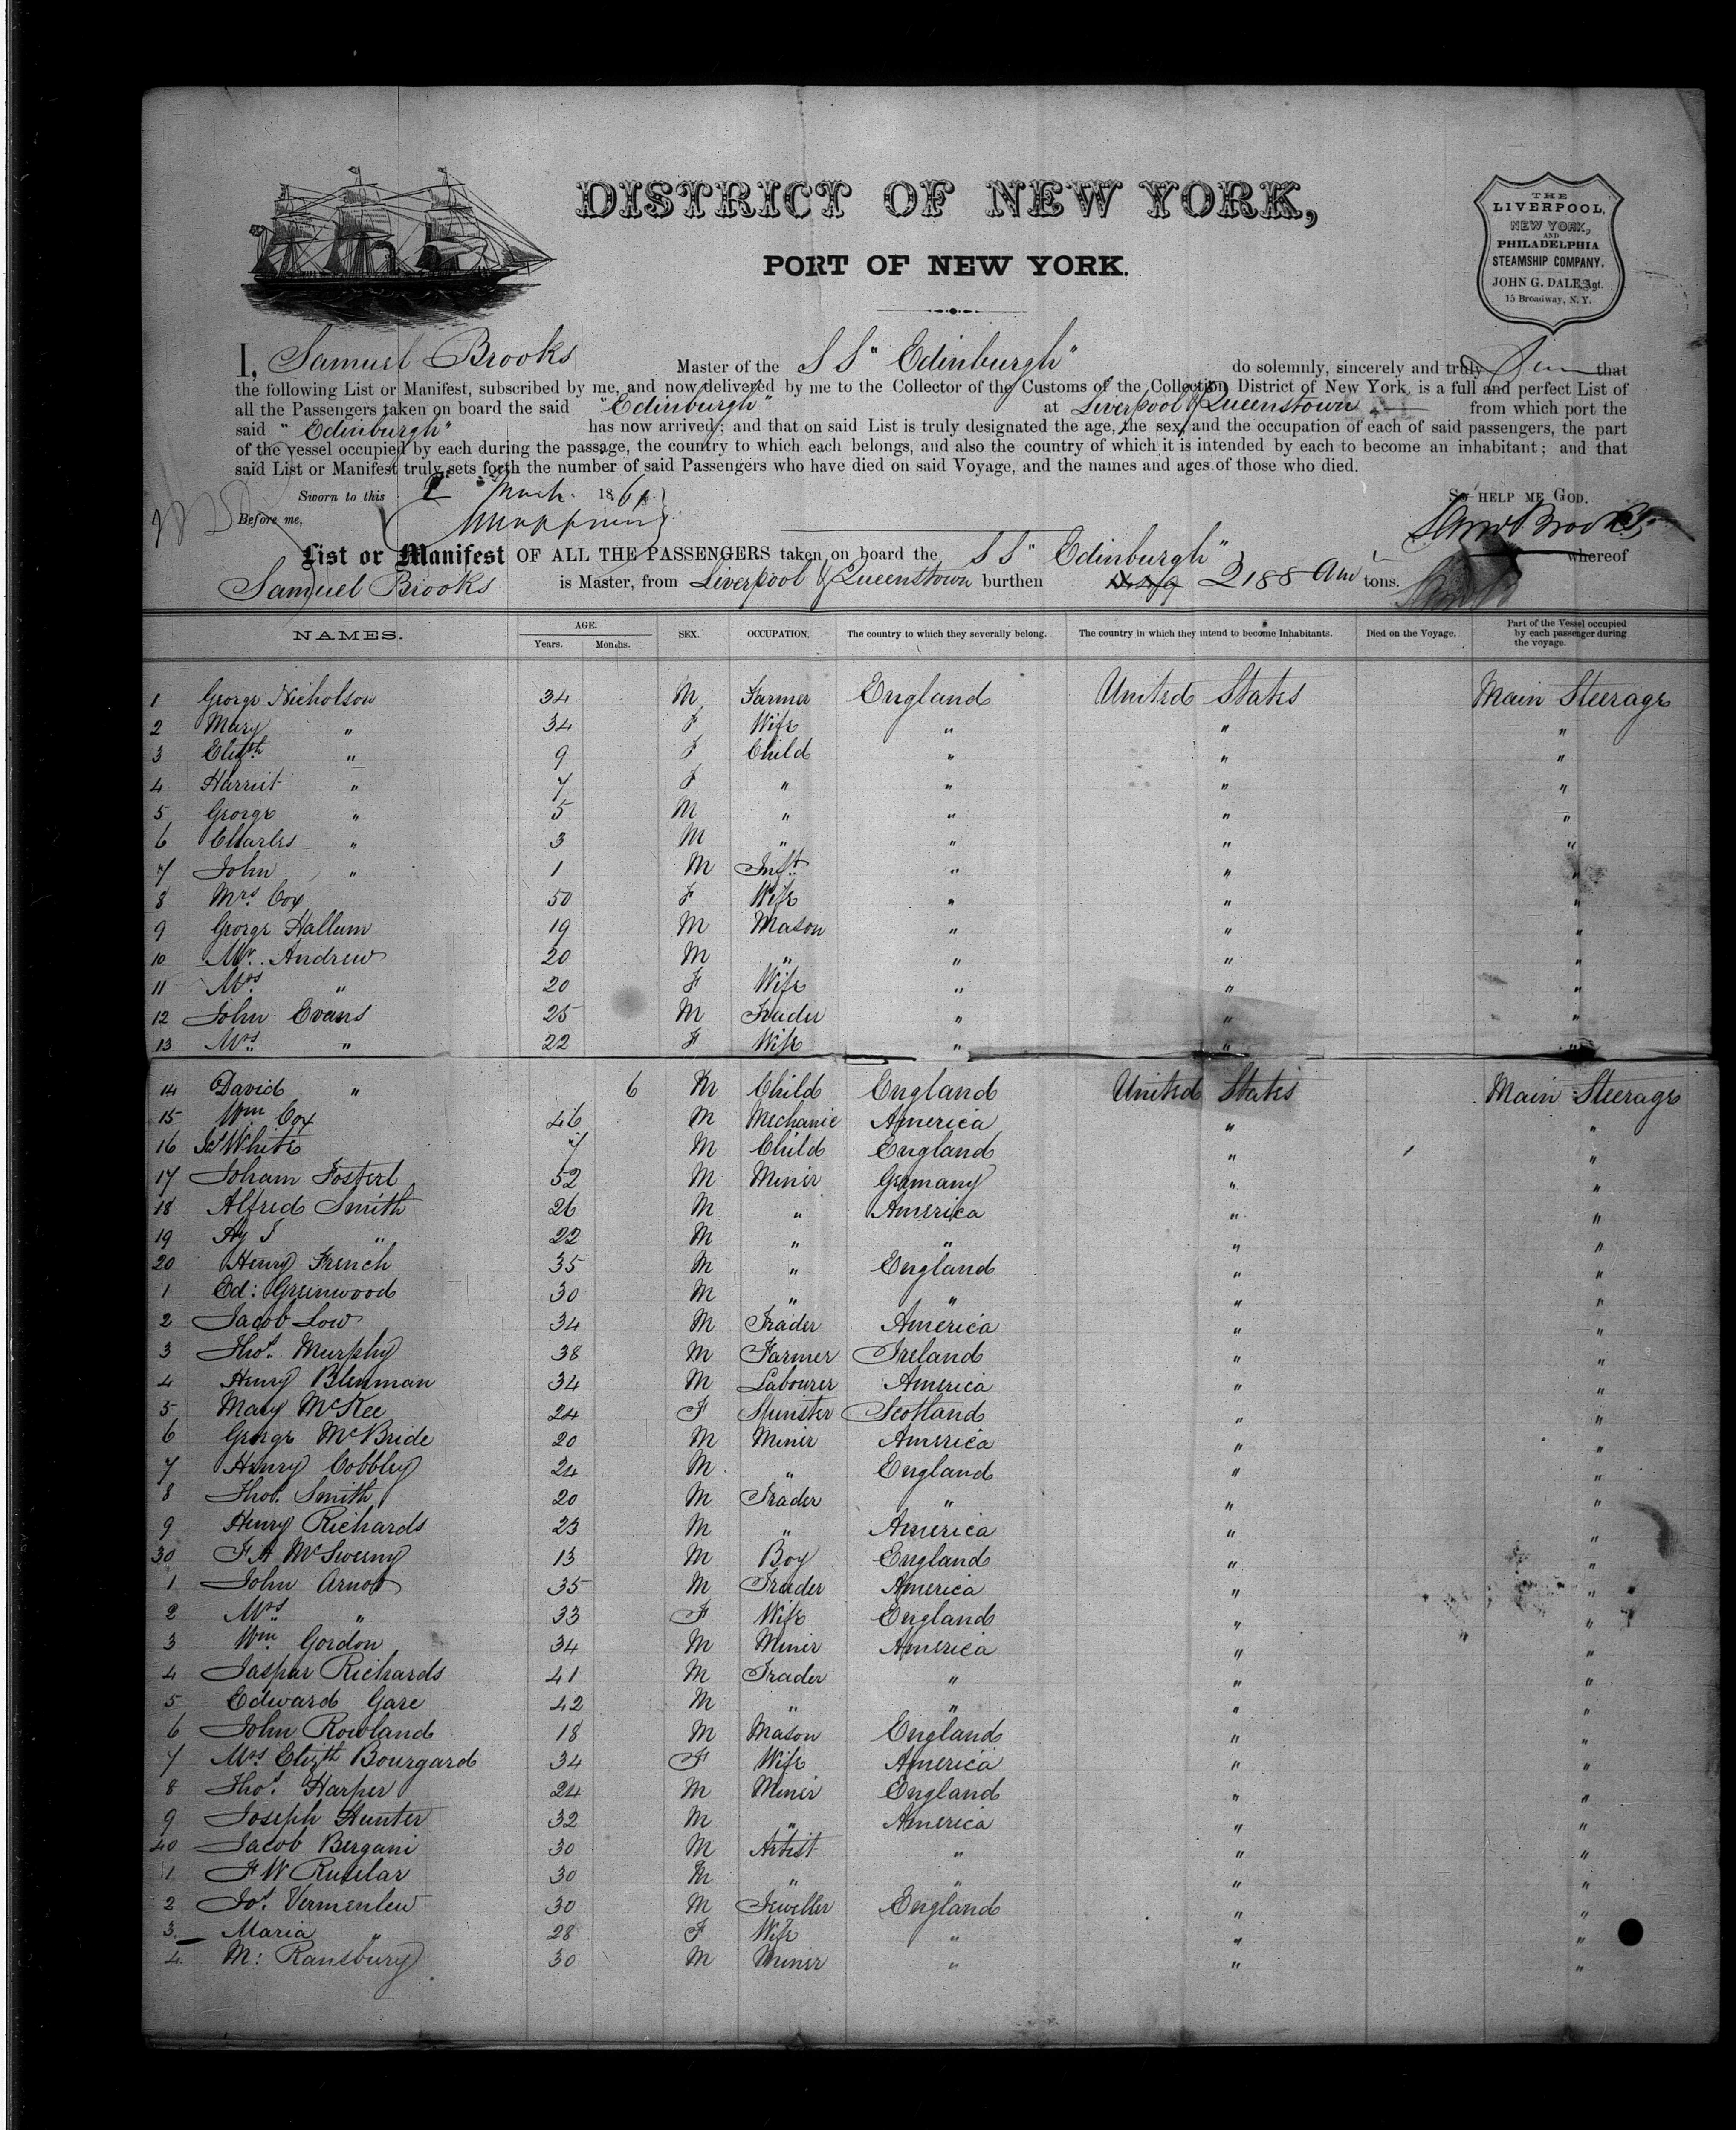 DISTRICT OF NEW YORK,
PORT OF NEW YORK.
THE
LIVERPOOL,
NEW YORK,
AND
PHILADELPHIA
STEAMSHIP COMPANY.
JOHN G. DALE, Agt.
15 Broadway, N. Y.
I, Samuel Brooks Master of the S S "Edinburgh" do solemnly, sincerely and truly that
the following List or Manifest, subscribed by me, and now delivered by me to the Collector of the Customs of the Collection District of New York, is a full and perfect List of
all the Passengers taken on board the said "Edinburgh" at Liverpool & Queenstown from which port the
said "Edinburgh" has now arrived; and that on said List is truly designated the age, the sex, and the occupation of each of said passengers, the part
of the vessel occupied by each during the passage, the country to which each belongs, and also the country of which it is intended by each to become an inhabitant; and that
said List or Manifest truly sets forth the number of said Passengers who have died on said Voyage, and the names and ages of those who died.
Sworn to this 2 March 186 SO HELP ME GOD.
Before me,
Saml Brooks
List or Manifest OF ALL THE PASSENGERS taken on board the S S "Edinburgh" whereof
Samuel Brooks is Master, from Liverpool & Queenstown burthen 2188 Am tons.
NAMES. AGE. Years. Months. SEX. OCCUPATION. The country to which they severally belong. The country in which they intend to become Inhabitants. Died on the Voyage. Part of the Vessel occupied by each passenger during the voyage.
1 George Nicholson 34 M Farmer England United States Main Steerage
2 Mary " 34 F Wife " " "
3 Elizth " 9 F Child " " "
4 Harriet " 7 F " " " "
5 George " 5 M " " " "
6 Charles " 3 M " " " "
7 John " 1 M Inft " " "
8 Mrs Cox 50 F Wife " " "
9 George Hallum 19 M Mason " " "
10 Mr. Andrew 20 M " " " "
11 Mrs " 20 F Wife " " "
12 John Evans 25 M Trader " " "
13 Mrs " 22 F Wife " " "
14 David " 6 M Child England United States Main Steerage
15 Wm Cox 46 M Mechanic America " "
16 Jas White 7 M Child England " "
17 Joham Fosterl 52 M Miner Germany " "
18 Alfred Smith 26 M " America " "
19 Hy J " 22 M " " " "
20 Henry French 35 M " England " "
1 Ed: Greenwood 30 M " " " "
2 Jacob Low 34 M Trader America " "
3 Thos. Murphy 38 M Farmer Ireland " "
4 Henry Blenman 34 M Labourer America " "
5 Mary McKee 24 F Spinster Scotland " "
6 George McBride 20 M Miner America " "
7 Henry Cobbley 24 M " England " "
8 Thos. Smith 20 M Trader " " "
9 Henry Richards 23 M " America " "
30 F A McSweeny 13 M Boy England " "
1 John Arnot 35 M Trader America " "
2 Mrs " 33 F Wife England " "
3 Wm Gordon 34 M Miner America " "
4 Jaspar Richards 41 M Trader " " "
5 Edward Gare 42 M " " " "
6 John Rowland 18 M Mason England " "
7 Mrs Elizth Bourgard 34 F Wife America " "
8 Thos. Harper 24 M Miner England " "
9 Joseph Hunter 32 M " America " "
40 Jacob Bergani 30 M Artist " " "
1 F W 30 M " " " "
2 Jos. Vermenlew 30 M Jeweller England " "
3 Maria " 28 F Wife " " "
4 M: Ransbury 30 M Miner " " "